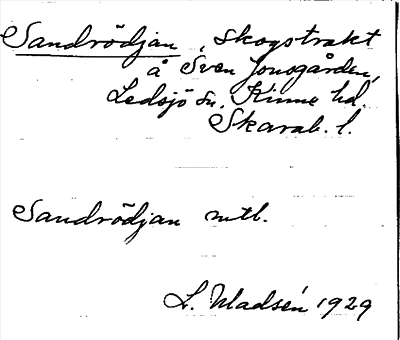 Sandrödjan, skogstrakt
å Sven Jonsgården,
Ledsjö sn, Kinne hd.
Skarab. l.
Sandrödjan mtl.
L. Madsén 1929